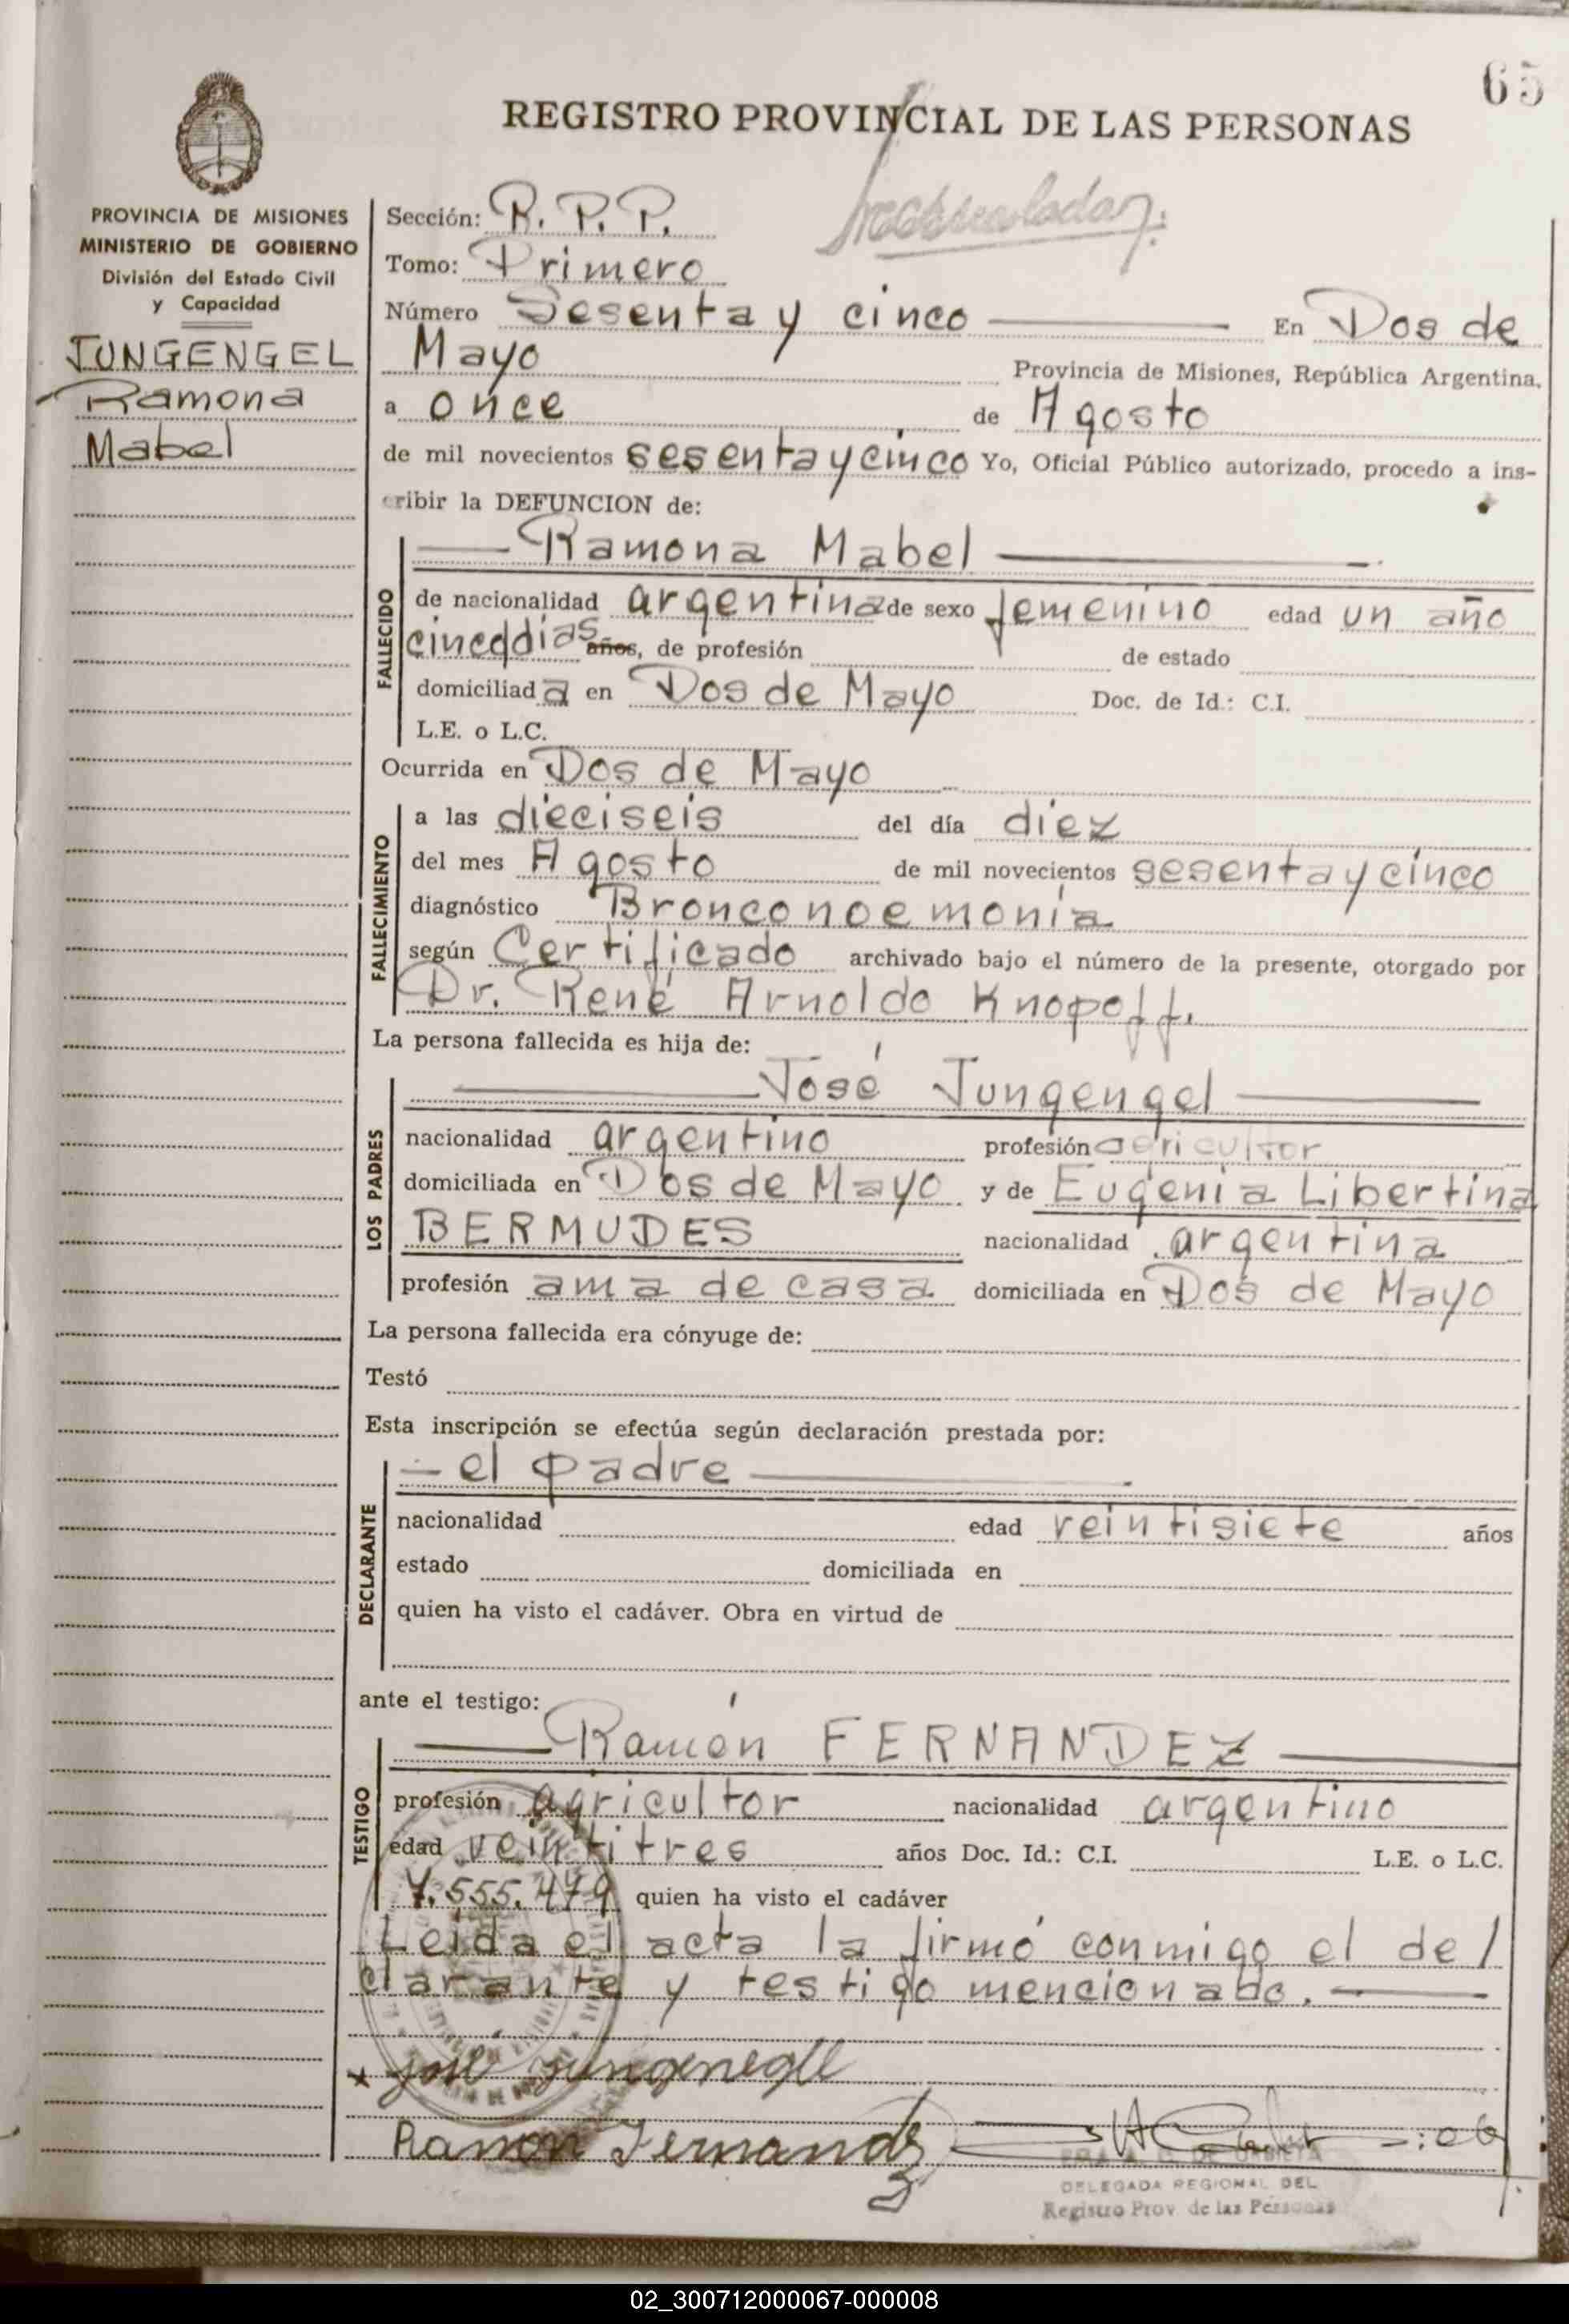 65
REGISTRO PROVINCIAL DE LAS PERSONAS
PROVINCIA DE MISIONES
MINISTERIO DE GOBIERNO
División del Estado Civil
y Capacidad
JUNGENGEL
Ramona
Mabel
Sección: R. P. P.
Tomo: Primero
Número Sesenta y cinco En Dos de
Mayo Provincia de Misiones, República Argentina,
a once de Agosto
de mil novecientos sesenta y cinco Yo, Oficial Público autorizado, procedo a ins-
cribir la DEFUNCION de:
Ramona Mabel
FALLECIDO
de nacionalidad argentina de sexo femenino edad un año
cinco días años, de profesión de estado
domiciliad a en Dos de Mayo Doc. de Id.: C.I.
L.E. o L.C.
Ocurrida en Dos de Mayo
FALLECIMIENTO
a las dieciseis del día diez
del mes Agosto de mil novecientos sesenta y cinco
diagnóstico Bronconoemonía
según Certificado archivado bajo el número de la presente, otorgado por
Dr. René Arnoldo Knopoff.
La persona fallecida es hija de:
José Jungengel
LOS PADRES
nacionalidad argentino profesión agricultor
domiciliada en Dos de Mayo y de Eugenia Libertina
BERMUDES nacionalidad argentina
profesión ama de casa domiciliada en Dos de Mayo
La persona fallecida era cónyuge de:
Testó
Esta inscripción se efectúa según declaración prestada por:
el padre
DECLARANTE
nacionalidad edad veintisiete años
estado domiciliada en
quien ha visto el cadáver. Obra en virtud de
ante el testigo:
Ramón FERNANDEZ
TESTIGO
profesión agricultor nacionalidad argentino
edad veintitres años Doc. Id.: C.I. L.E. o L.C.
7.555.479 quien ha visto el cadáver
Leida el acta la firmó conmigo el de
clarante y testigo mencionado.
José Jungenegll
Ramon Fernandez
DELEGADA REGIONAL DEL
Registro Prov. de las Personas
02_300712000067-000008